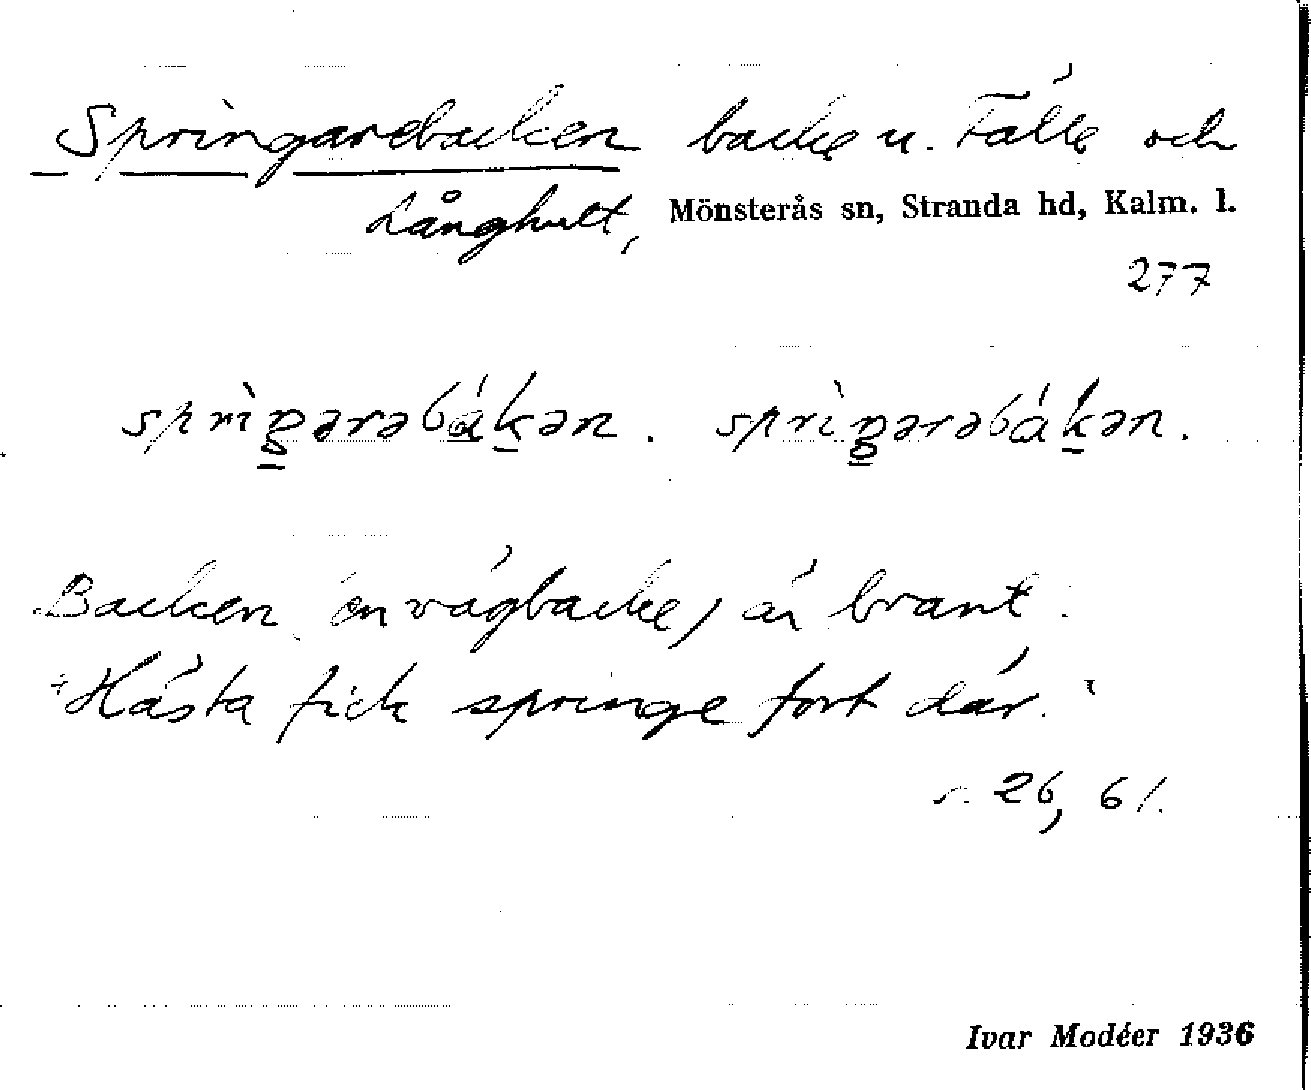 Springarebacken backe u. Fälle och
Långhult, Mönsterås sn, Stranda hd, Kalm. l.
277
sprìŋ̠ərəbák̠ən. sprìŋ̠ərəbák̠ən.
Backen (en vägbacke) är brant.
"Hästa fick springe fort där."
r. 26, 61.
Ivar Modéer 1936